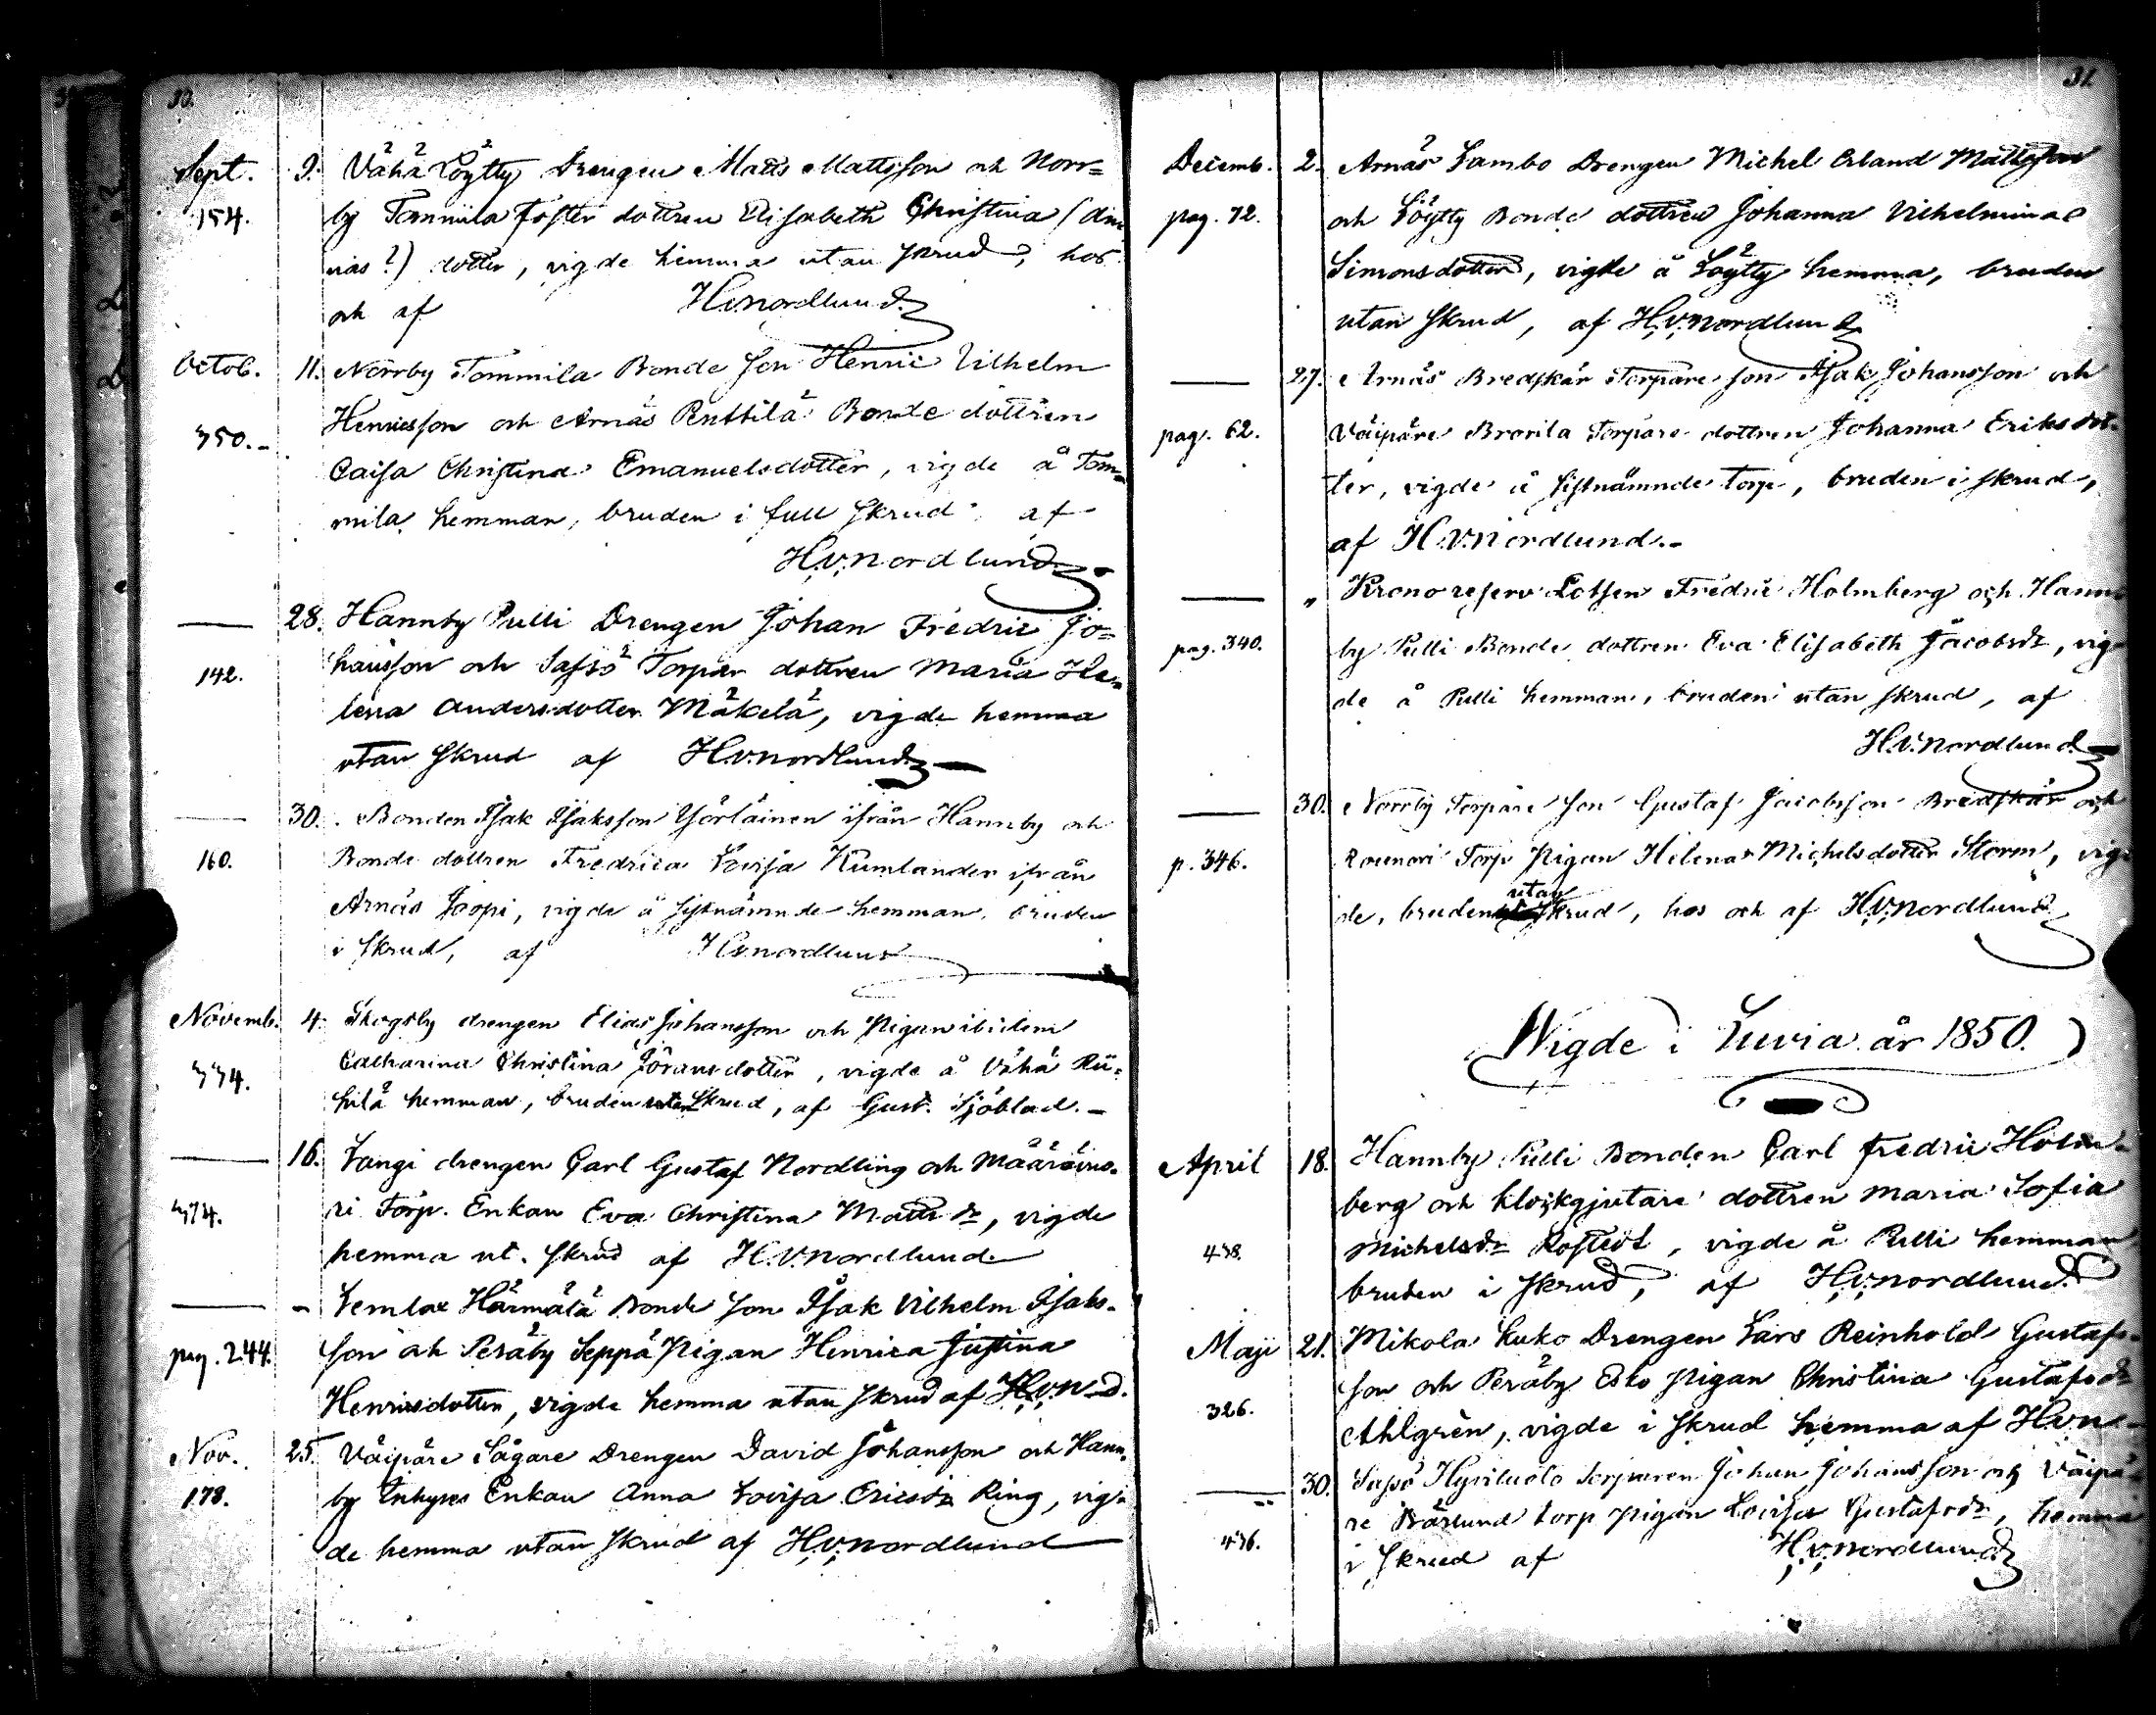 30.
Sept. 9. Vähä Löytty Drengen Matts Mattsson och Norr=
154. by Tommila foster dottren Elisabeth Christina (An
nas?) dotter, vigde hemma utan skrud, hos
och af H.v.nordlund.
Octob. 11. Norrby Tommila Bonde Son Henric Vilhelm
350. Henricsson och Arnäs Penttilä Bonde dottren
Caisa Christina Emanuelsdotter, vigde å Tom=
mila hemman, bruden i full Skrud, af
H.v.nordlund
28. Hannby Pulli Drengen Johan Fredric Jo=
142. hansson och Sassö Torpar dottren Maria He=
lena Andersdotter Mäkelä, vigde hemma
utan Skrud af H.v.nordlund
30. Bonden Isak Isaksson Yförläinen ifrån Hannby och
160. Bonde dottren Fredrica Lovisa Kumlander ifrån
Arnäs Jaopi, vigde å sistnämnde hemman, bruden
i Skrud, af H.v.nordlund
Novemb. 4. Skogsby drengen Elias Johansson och Pigan ibidem
334. Catharina Christina Göransdotter, vigde å Vähä Rii=
hilä hemman, bruden utan Skrud, af Gust. Sjöblad.
16. Langi drengen Carl Gustaf Nordling och
374. ri Torp. Enkan Eva Christina Matts dr, vigde
hemma ut. Skrud af H.v.nordlund
Lemlax Härmälä Bonde Son Isak Vilhelm Isaks=
pag. 244. son och Peräby Seppä Pigan Henrica Justina
Henricsdotter, vigde hemma utan skrud af H.v.N-d.
Nov. 25. Väipäre Sågare Drengen David Johansson och Hann=
178. by Inhyses Enkan Anna Lovisa Ericsdr Ring, vig=
de hemma utan Skrud af H.v.nordlund
31.
Decemb. 2. Arnäs Lambo Drengen Michel Erland Mattsson
pag. 72. och Löytty Bonde dottren Johanna Vilhelmina
Simonsdotter, vigde å Löytty hemma, bruden
utan Skrud, af H.v.nordlund
27. Arnäs Bredskär Torpare son Isak Johansson och
pag. 62. Väipäre Brorila Torpare dottren Johanna Eriksdot=
ter, vigde å sistnämnde torp, bruden i skrud,
af H.v.nordlund.
" Krono reserv Lotsen Fredric Holmberg och Hann
pag. 340. by Pulli Bonde dottren Eva Elisabeth Jacobsdr, vig=
de å Pulli hemman, bruden utan skrud, af
H.v.nordlund
30. Norrby Torpare Son Gustaf Jacobsson Bredskär och
p. 346. Rounori Torp Pigan Helena Michelsdotter Storm, vig=
de, bruden utan Skrud, hos och af H.v.nordlund
Wigde i Luvia år 1850.
April 18. Hannby Pulli Bonden Carl fredric Holm=
berg och klockgjutare dottren Maria Sofia
438. Michelsdr Rostedt, vigde å Pulli hemman
bruden i Skrud, af H.v.nordlund
Maji 21. Mikola Luko Drengen Lars Reinhold Gustafs=
326. son och Peräby Esko Pigan Christina Gustafsdr
Ahlgrèn, vigde i Skrud hemma af H.v.n-
30. Sassö Hyviluoto Torparen Johan Johansson och Väipä=
436. re Bärlund torp Pigan Lovisa Gustafsdr, hemma
i Skrud af H.v.nordlund